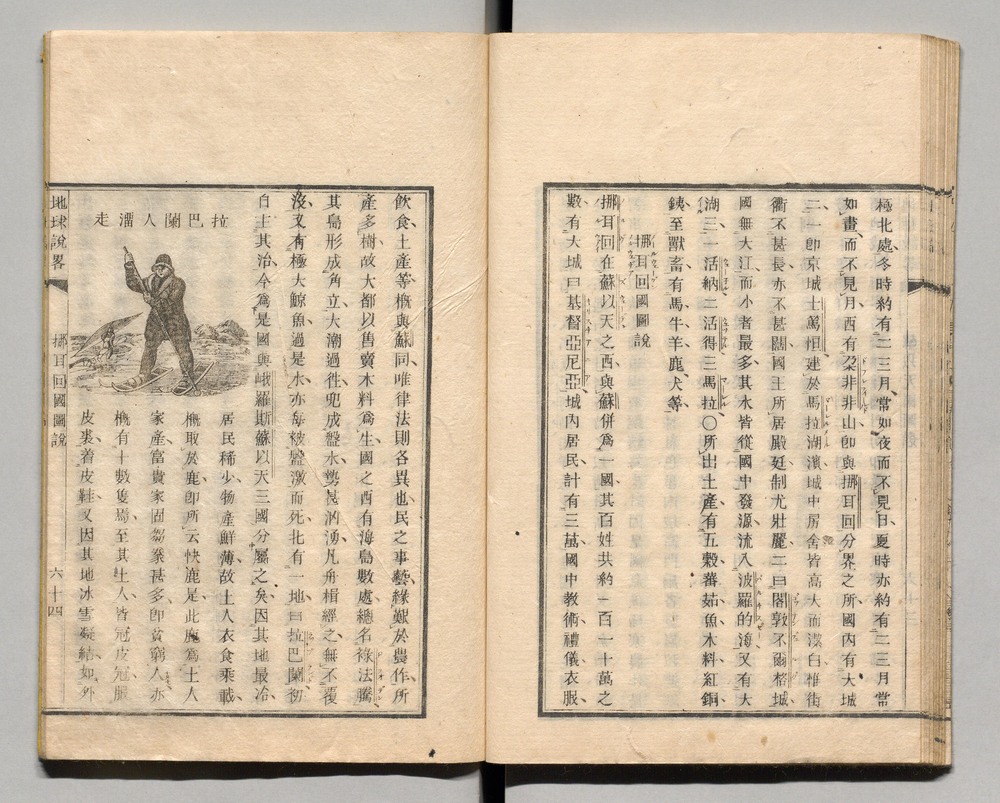 極北處、冬時約有二三月常如夜而不見日、夏時亦約有二三月常
如晝、而不見月、西有朶非非山、卽與挪耳回分界之所、國內有大城
二、一卽京城士篤恒、建於馬拉湖濱、城中房舍皆高大而潔白、惟街
衢不甚長、亦不甚闊、國王所居殿廷、制尤壯麗、二曰閣敦不爾格城、
國無大江、而小者最多、其水皆從國中發源、流入波羅的海、又有大
湖三、一活納二活得三馬拉〇所出土產、有五穀蕃茄魚木料紅銅
鐵、至獸畜有馬牛羊鹿犬等、
挪耳回國圖說
挪耳回在蘇以天之西、與蘇併爲一國、其百姓共約一百一十萬之
數、有大城曰基督亞尼亞、城內居民、計有三萬、國中教術禮儀衣服、
飮食、土產等、槪與蘇同、唯律法則各異也、民之事藝、緣艱於農作、所
產多樹、故大都以售賣木料爲生、國之西有海島數處、總名祿法騰、
其島形成角立、大潮過往、兜成盤水、勢甚洶湧、凡舟楫經之、無不覆
沒、又有極大鯨魚過是水、亦每被盤激而死、北有一地曰拉巴蘭、初
自主其治、今爲是國與峨羅斯蘇以天三國分屬之矣、因其地最冷、
拉巴蘭人溜走
居民稀少、物產鮮薄、故土人衣食乘載、
槪取於鹿、卽所云快鹿是、此鹿爲土人
家產、富貴家固芻豢甚多、卽貧窮人、亦
槪有十數隻焉、至其土人、皆冠皮冠、服
皮裘、着皮鞋、又因其地冰雪凝結、如外
地球說畧
挪耳回國圖說
六十四